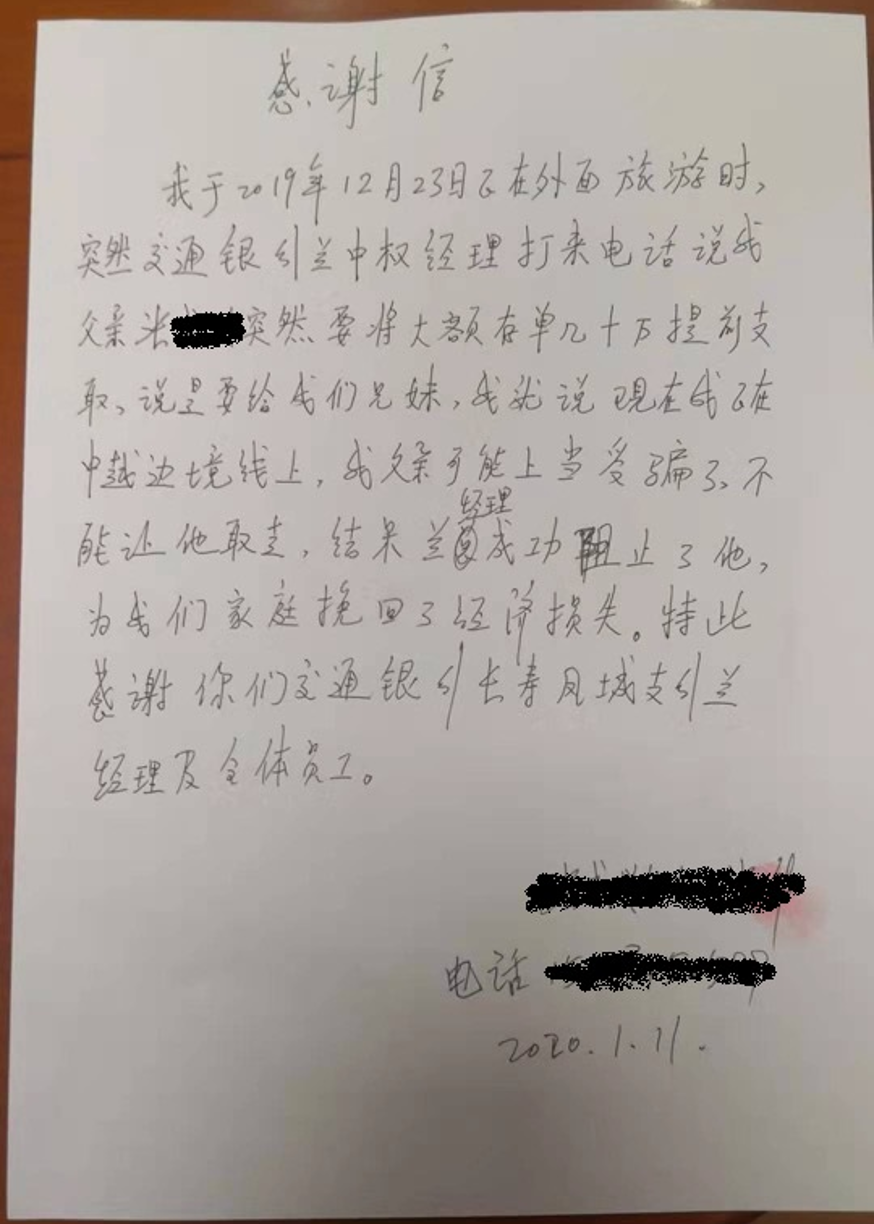 感谢信
我于2019年12月23日正在外面旅游时,
突然交通银行兰中权经理打来电话说我
父亲张突然要将大额存单几十万提前支
取,说是要给我们兄妹,我就说现在我正在
中越边境线上,我父亲可能上当受骗了,不
经理
能让他取走,结果兰成功阻止了他,
为我们家庭挽回了经济损失。特此
感谢你们交通银行长寿凤城支行兰
经理及全体员工。
电话
2020.1.11.